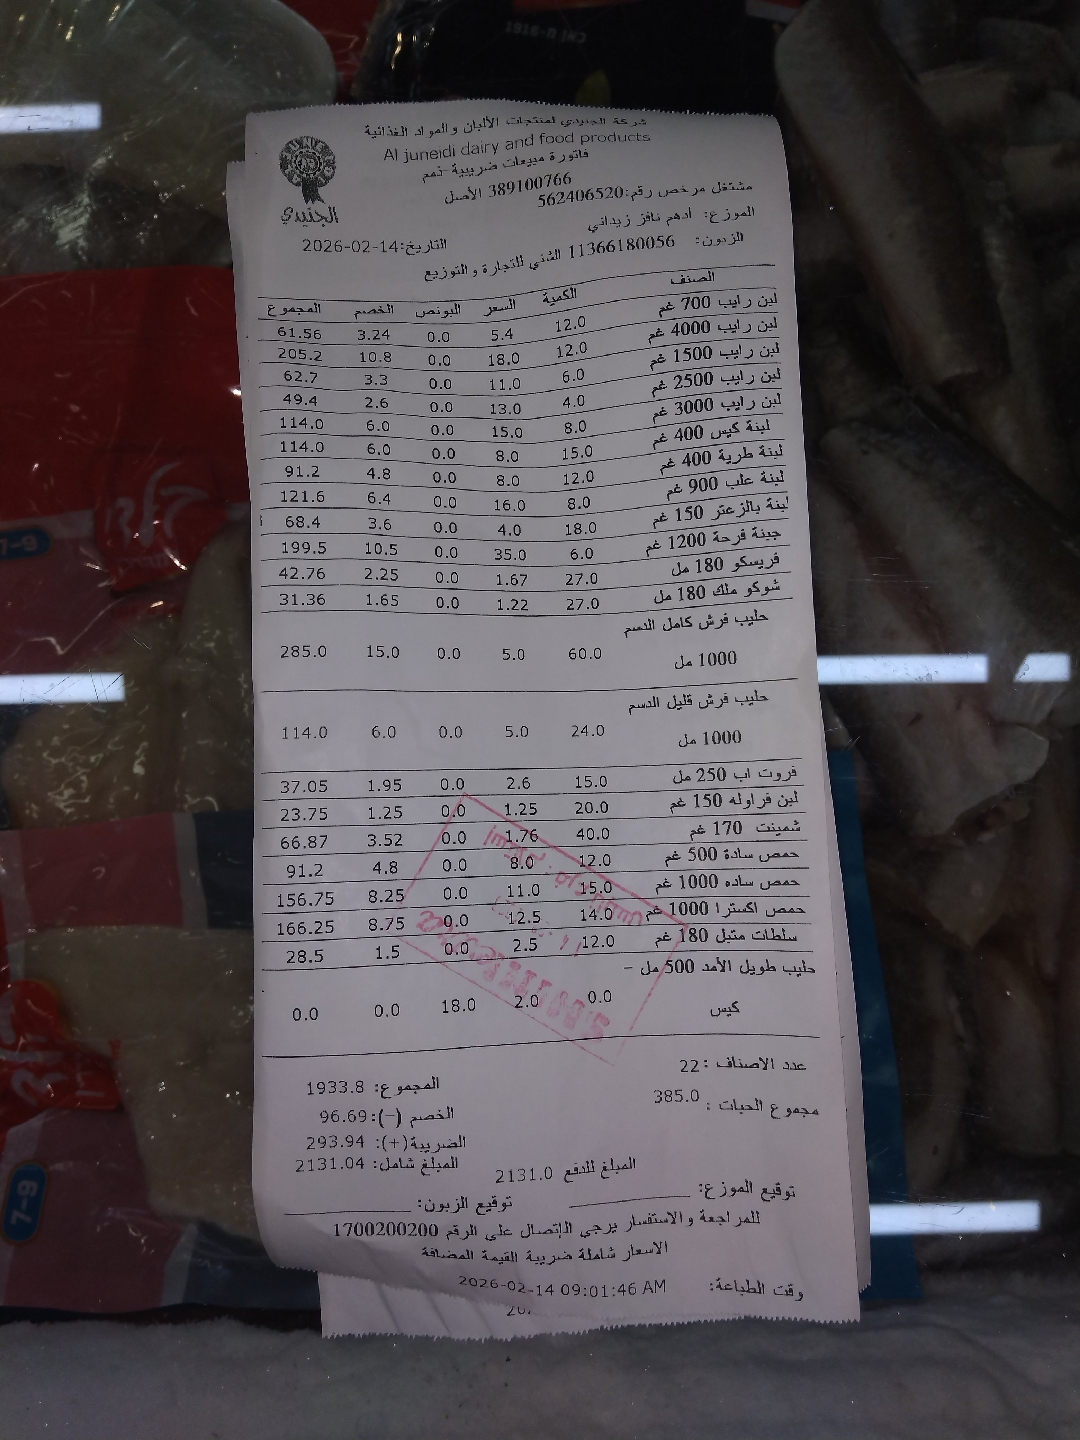 شركة الجنيدي لمنتجات الألبان والمواد الغذائية
Al juneidi dairy and food products
فاتورة مبيعات ضريبية-نمم
389100766 الأصل
مشتغل مرخص رقم:562406520
الموزع: أدهم نافز زيداني
التاريخ:2026-02-14
الزبون: 11366180056 الفني للتجارة والتوزيع
الجنيدي
الصنف الكمية السعر البونص الخصم المجموع
لبن رايب 700 غم 12.0 5.4 0.0 3.24 61.56
لبن رايب 4000 غم 12.0 18.0 0.0 10.8 205.2
لبن رايب 1500 غم 6.0 11.0 0.0 3.3 62.7
لبن رايب 2500 غم 4.0 13.0 0.0 2.6 49.4
لبن رايب 3000 غم 8.0 15.0 0.0 6.0 114.0
لبنة كيس 400 غم 15.0 8.0 0.0 6.0 114.0
لبنة طرية 400 غم 12.0 8.0 0.0 4.8 91.2
لبنة علب 900 غم 8.0 16.0 0.0 6.4 121.6
لبنة بالزعتر 150 غم 18.0 4.0 0.0 3.6 68.4
جبنة فرحة 1200 غم 6.0 35.0 0.0 10.5 199.5
فريسكو 180 مل 27.0 1.67 0.0 2.25 42.76
شوكو ملك 180 مل 27.0 1.22 0.0 1.65 31.36
حليب فرش كامل الدسم
1000 مل 60.0 5.0 0.0 15.0 285.0
حليب فرش قليل الدسم
1000 مل 24.0 5.0 0.0 6.0 114.0
فروت اب 250 مل 15.0 2.6 0.0 1.95 37.05
لبن فراوله 150 غم 20.0 1.25 0.0 1.25 23.75
شمينت 170 غم 40.0 1.76 0.0 3.52 66.87
حمص سادة 500 غم 12.0 8.0 0.0 4.8 91.2
حمص ساده 1000 غم 15.0 11.0 0.0 8.25 156.75
حمص اكسترا 1000 غم 14.0 12.5 0.0 8.75 166.25
سلطات متبل 180 غم 12.0 2.5 0.0 1.5 28.5
حليب طويل الأمد 500 مل -
كيس 0.0 2.0 18.0 0.0 0.0
عدد الاصناف :22
المجموع: 1933.8
مجموع الحبات : 385.0
الخصم (-):96.69
الضريبة(+): 293.94
المبلغ شامل: 2131.04
المبلغ للدفع 2131.0
توقيع الموزع:
توقيع الزبون:
للمراجعة والاستفسار يرجي الإتصال على الرقم 1700200200
الاسعار شاملة ضريبة القيمة المضافة
وقت الطباعة: 2026-02-14 09:01:46 AM
7-9
7-9